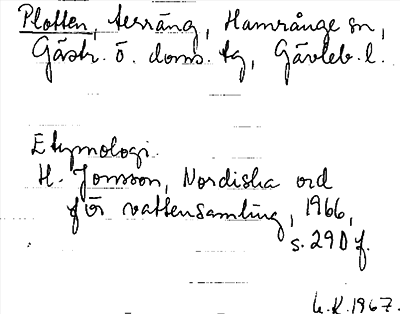 Plotten, terräng, Hamrånge sn,
Gästr. ö. doms. tg, Gävleb. l.
Etymologi.
H. Jonsson, Nordiska ord
för vattensamling, 1966,
s. 290 f.
G.K. 1967.